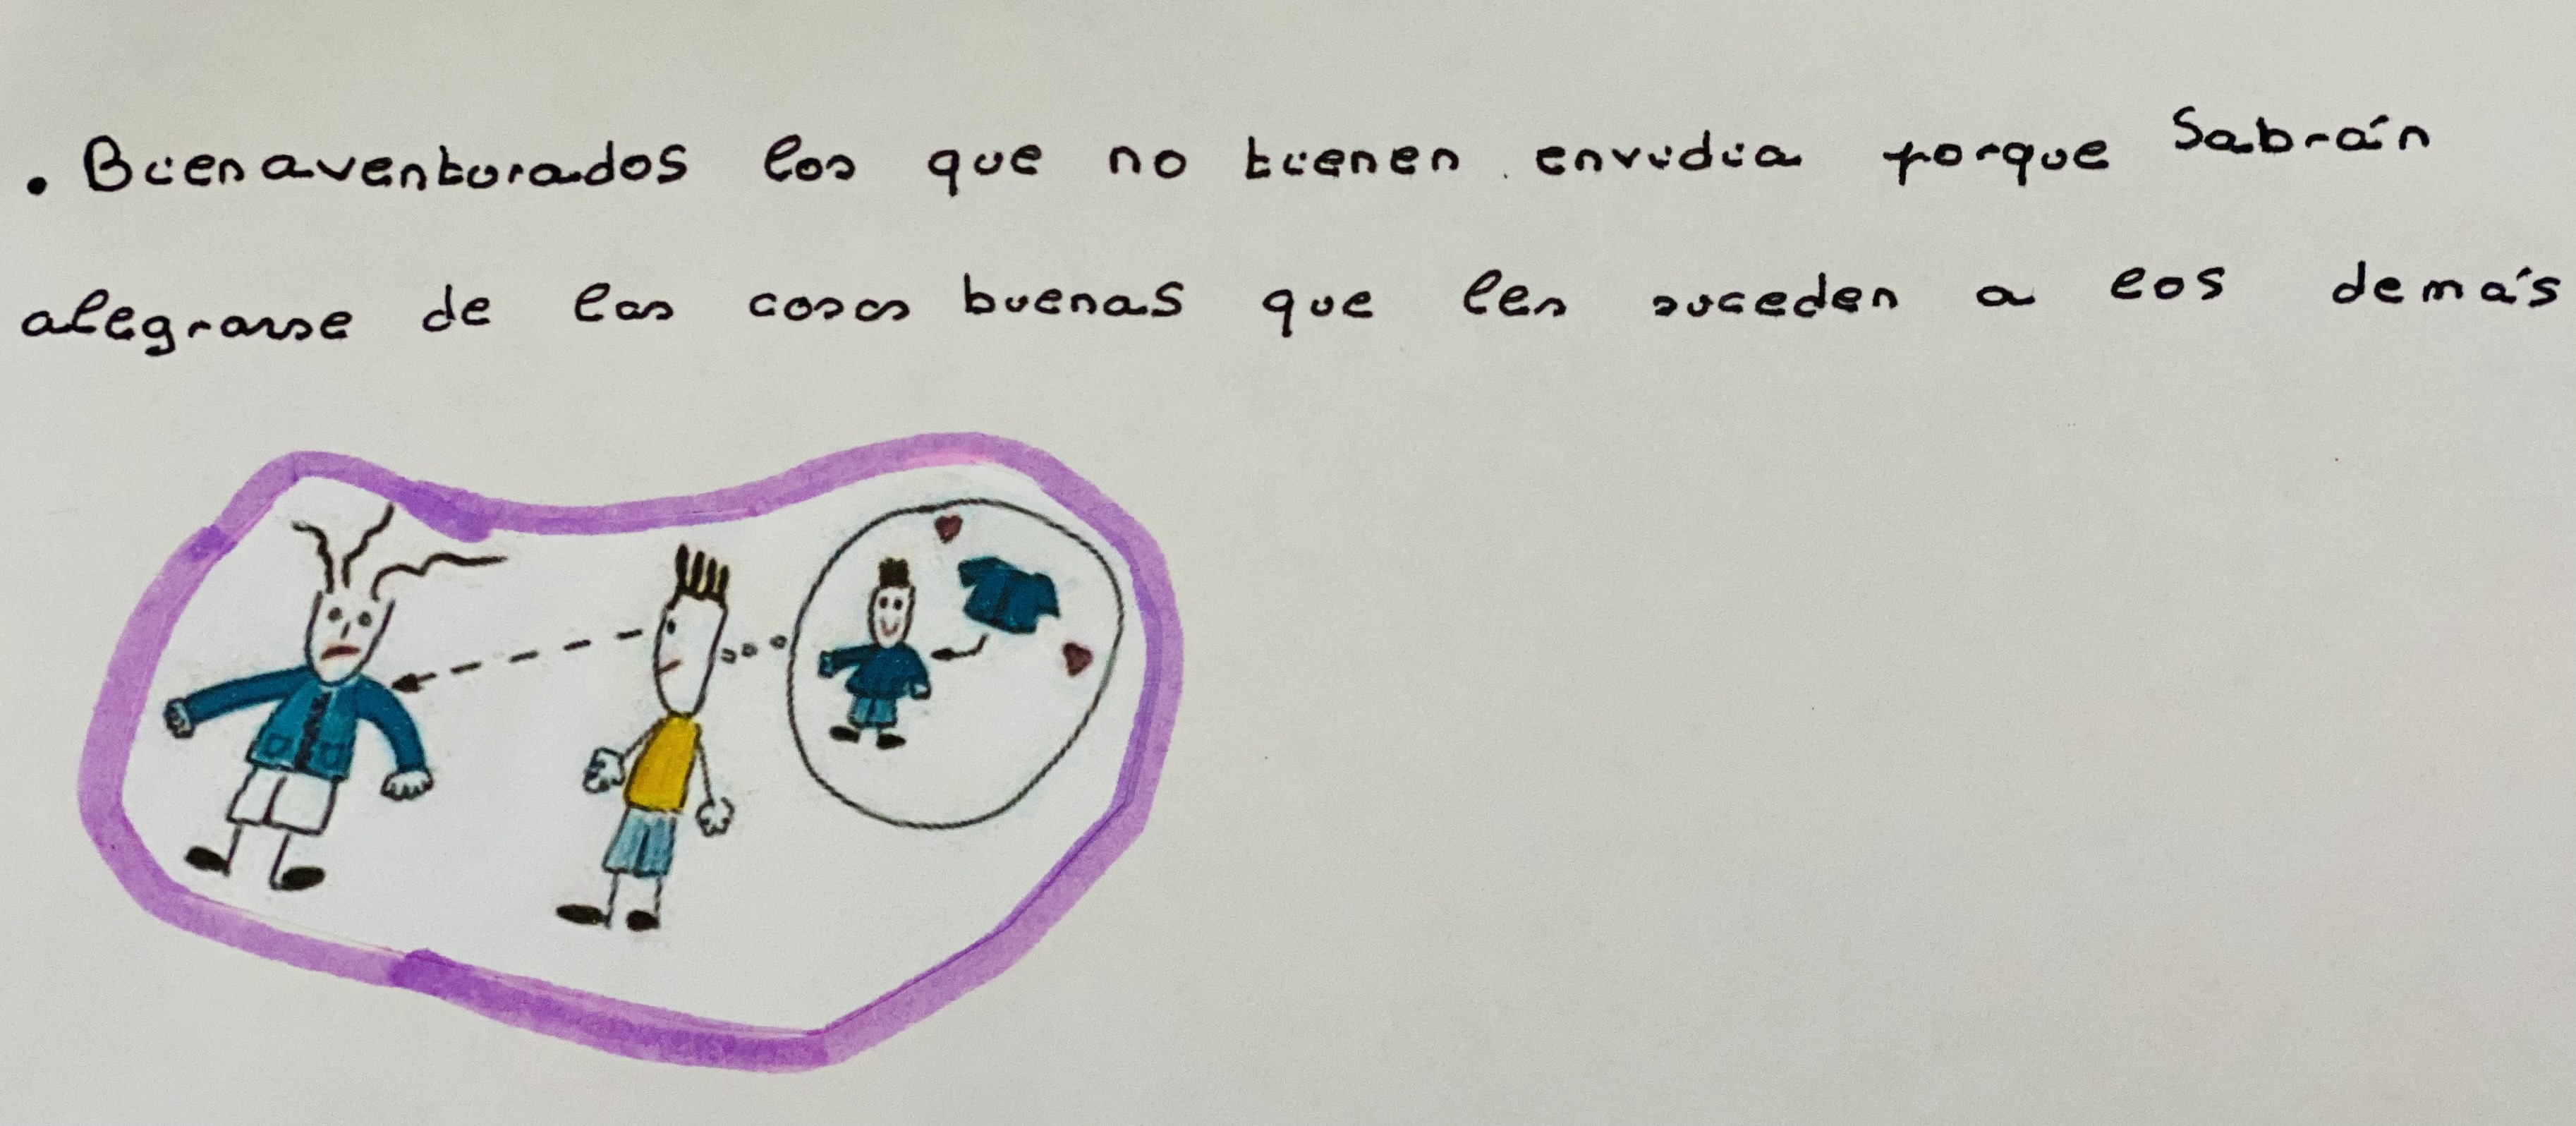 . Bienaventurados los que no tienen envidia porque Sabrán
alegrarse de las cosas buenas que les suceden a los demás